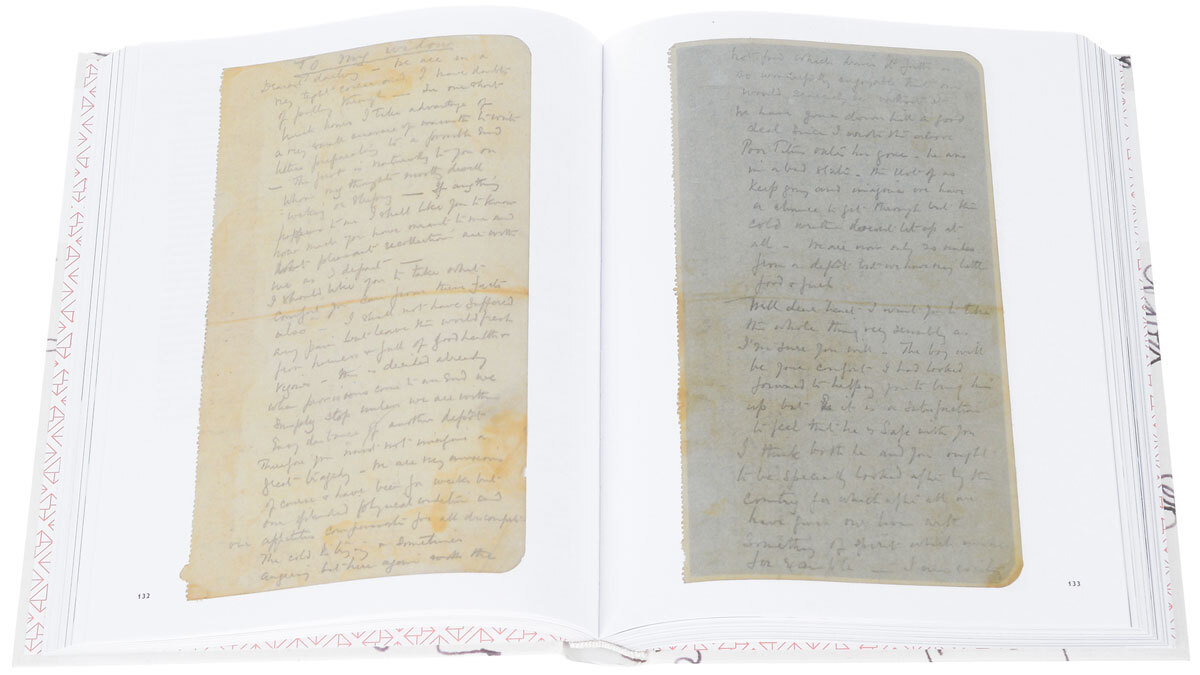 To my widow
Dearest darling – we are in a
very tight corner and I have doubts
of pulling through – In our short
lunch hours I take advantage of
a very small measure of warmth to write
letters preparatory to a possible end
– The first is naturally to you on
whom my thoughts mostly dwell
waking or sleeping – If anything
happens to me I shall like you to know
how much you have meant to me and
that pleasant recollections are with
me as I depart –
I should like you to take what
comfort you can from these facts
also – I shall not have suffered
any pain but leave the world fresh
from harness & full of good health &
vigour – this is decided already
when provisions come to an end we
simply stop unless we are within
easy distance of another depot
Therefore you must not imagine a
great tragedy – we are very anxious
of course & have been for weeks but
our splendid physical condition and
our appetites compensate for all discomfort
The cold is biting & sometimes
angering but here again the
132
hot food which drives it forth is
so wonderfully enjoyable that we
would scarcely be without it
We have gone down hill a good
deal since I wrote the above
Poor Titus Oates has gone – he was
in a bad state – the rest of us
keep going and imagine we have
a chance to get through but the
cold weather doesn't let up at
all – We are now only 20 miles
from a depot but we have very little
food & fuel
Well dear heart I want you to take
the whole thing very sensibly as
I'm sure you will – The boy will
be your comfort I had looked
forward to helping you to bring him
up but it is a satisfaction
to feel that he is safe with you
I think both he and you ought
to be specially looked after by the
country for which after all we
have given our lives with
something of spirit which makes
for example – I am
133